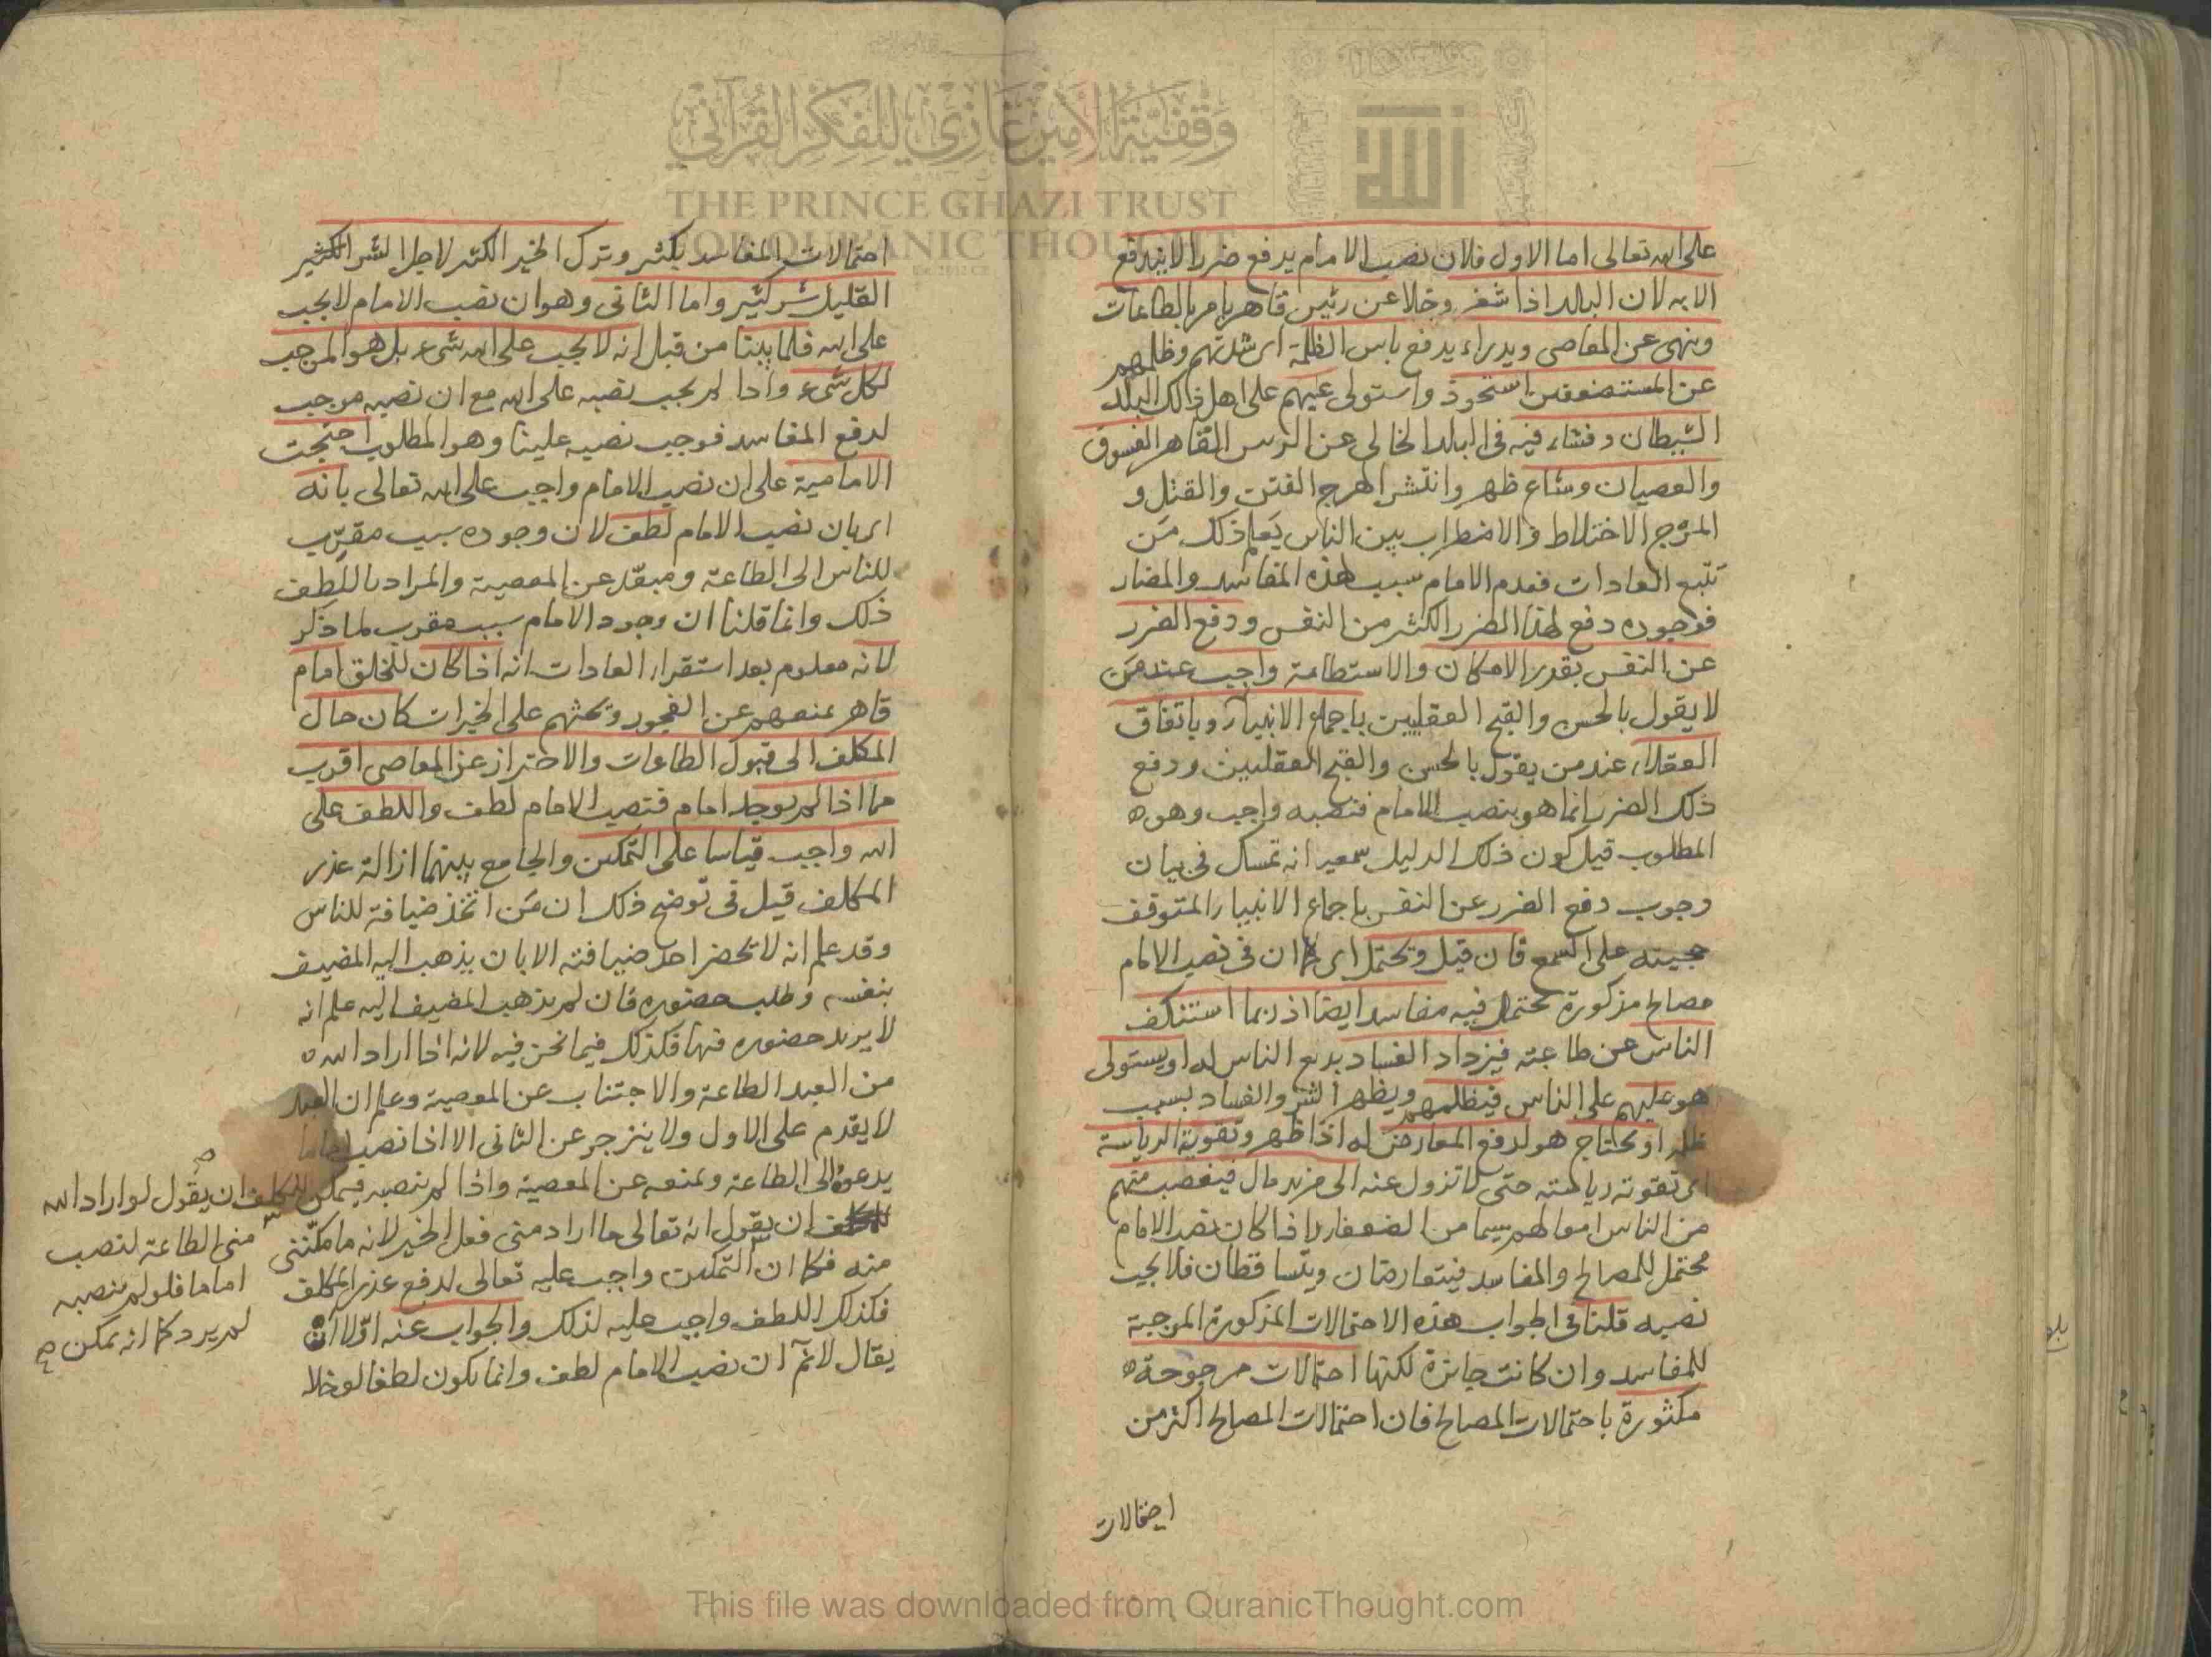 على الله تعالى اما الاول فلان نصب الامام يدفع ضررا لا يندفع
الا به لان البلد اذا شغر وخلا عن رئيس قاهر يامر بالطاعات
وينهى عن المعاصى ويدراء يدفع باس الظلمة اى شدتهم وظلمهم
عن المستضعفين استحوذ واستولى عليهم على اهل ذالك البلد
الشيطان وفشاء فيه فى البلد الخالى عن الرئس القاهر الفسوق
والعصيان وشاع ظهر وانتشر الهرج الفتن والقتل و
المرج الاختلاط والاضطراب بين الناس يعلم ذلك من
تتبع العادات فعدم الامام سبب هذه المفاسد والمضار
فوجوده دفع لهذا الضرر الكثر من النفس ودفع الضرر
عن النفس بقدر الامكان والاستطاعة واجب عند من
لا يقول بالحسن والقبح العقليين باجماع الانبياء وباتفاق
العقلاء عند من يقول بالحسن والقبح العقليين ودفع
ذلك الضرر انما هو بنصب الامام فنصبه واجب وهو
المطلوب قيل كون ذلك الدليل سمعيا انه تمسك فى بيان
وجوب دفع الضرر عن النفس باجماع الانبياء المتوقف
حجيته على السمع فان قيل ويحتمل اى كما ان فى نصب الامام
مصالح مذكورة يحتمل فيه مفاسد ايضا اذ ربما استنكف
الناس عن طاعته فيزداد الفساد الناس له او يستولى
هو عليهم على الناس فيظلمهم ويظهر الشر والفساد بسبب
ظلمه او يحتاج هو لدفع المعارض له اذا ظهر وتقوية الرياسة
اى تقوته رياسته حتى لا تزول عنه الى مزيد مال فيغصب منهم
من الناس اموالهم سيما من الضعفاء واذا كان نصب الامام
محتمل للمصالح والمفاسد فيتعارضان ويتساقطان فلا يجب
نصبه قلنا فى الجواب هذه الاحتمالات المذكورة الموجبة
للمفاسد وان كانت جائزة لكنها احتمالات مرجوحة
مكثورة باحتمالات المصالح فان احتمالات المصالح اكثر من
احتمالات
احتمالات المفاسد بكثير وترك الخير الكثير لاجل الشر الكثير
القليل شر كثير واما الثانى وهو ان نصب الامام لا يجب
على الله فلما بينا من قبل انه لا يجب على الله شىء بل هو الموجب
لكل شىء واذا لم يجب نصبه على الله مع ان نصبه موجب
لدفع المفاسد فوجب نصبه علينا وهو المطلوب احتجت
الامامية على ان نصب الامام واجب على الله تعالى بانه
اى بان نصب الامام لطف لان وجوده سبب مقرب
للناس الى الطاعة ومبعد عن المعصية والمراد باللطف
ذلك وانما قلنا ان وجود الامام سبب مقرب لما ذكر
لانه معلوم بعد استقراء العادات انه اذا كان للخلق امام
قاهر يمنعهم عن الفجور ويحثهم على الخيرات كان حال
المكلف الى قبول الطاعات والاحتراز عن المعاصى اقرب
مما اذا لم يوجد امام فنصب الامام لطف واللطف على
الله واجب قياسا على التمكين والجامع بينهما ازالة عذر
المكلف قيل فى توضح ذلك ان من اتخذ ضيافة للناس
وقد علم انه لا يحضر احد ضيافته الا بان يذهب اليه المضيف
بنفسه وطلب حضوره فان لم يذهب المضيف اليه علم انه
لا يريد حضوره فيها فكذلك فيما نحن فيه لانه اذا اراد الله
من العبد الطاعة والاجتناب عن المعصية وعلم ان العبد
لا يقدم على الاول ولا ينزجر عن الثانى الا اذا نصب اماما
يدعوه الى الطاعة ويمنعه عن المعصية واذا لم ينصبه فيمكن للمكلف ان يقول لو اراد الله
منى الطاعة لنصب
اماما فلو لم ينصبه
لم يرد كما انه يمكن
للمكلف ان يقول انه تعالى ما اراد منى فعل الخير لانه ما مكننى
منه فكما ان التمكين واجب عليه تعالى لدفع عذر المكلف
فكذلك اللطف واجب عليه لذلك والجواب عنه اولا ان
يقال لا نم ان نصب الامام لطف وانما يكون لطفا لو خلا
وقفية الأمير غازي للفكر القرآني
THE PRINCE GHAZI TRUST
FOR QUR'ANIC THOUGHT
الله
This file was downloaded from QuranicThought.com